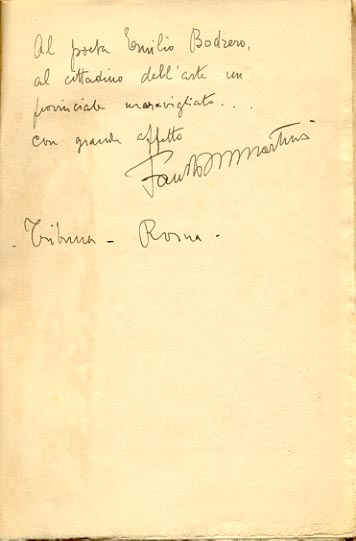 Al poeta Emilio Bodrero,
al cittadino dell'arte un
provinciale maravigliato...
con grande affetto
Fausto M Martini
- Tribuna - Roma -